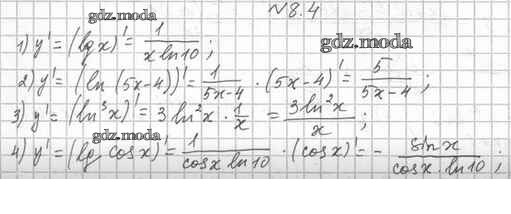 №8.4
gdz.moda
1) y' = (lg x)' = 1/(x ln10) ;
gdz.moda
2) y' = (ln (5x-4))' = 1/(5x-4) · (5x-4)' = 5/(5x-4) ;
3) y' = (ln³x)' = 3 ln²x · 1/x = 3ln²x/x ;
gdz.moda
4) y' = (lg cosx)' = 1/(cosx ln10) · (cosx)' = - sinx/(cosx · ln10) ;